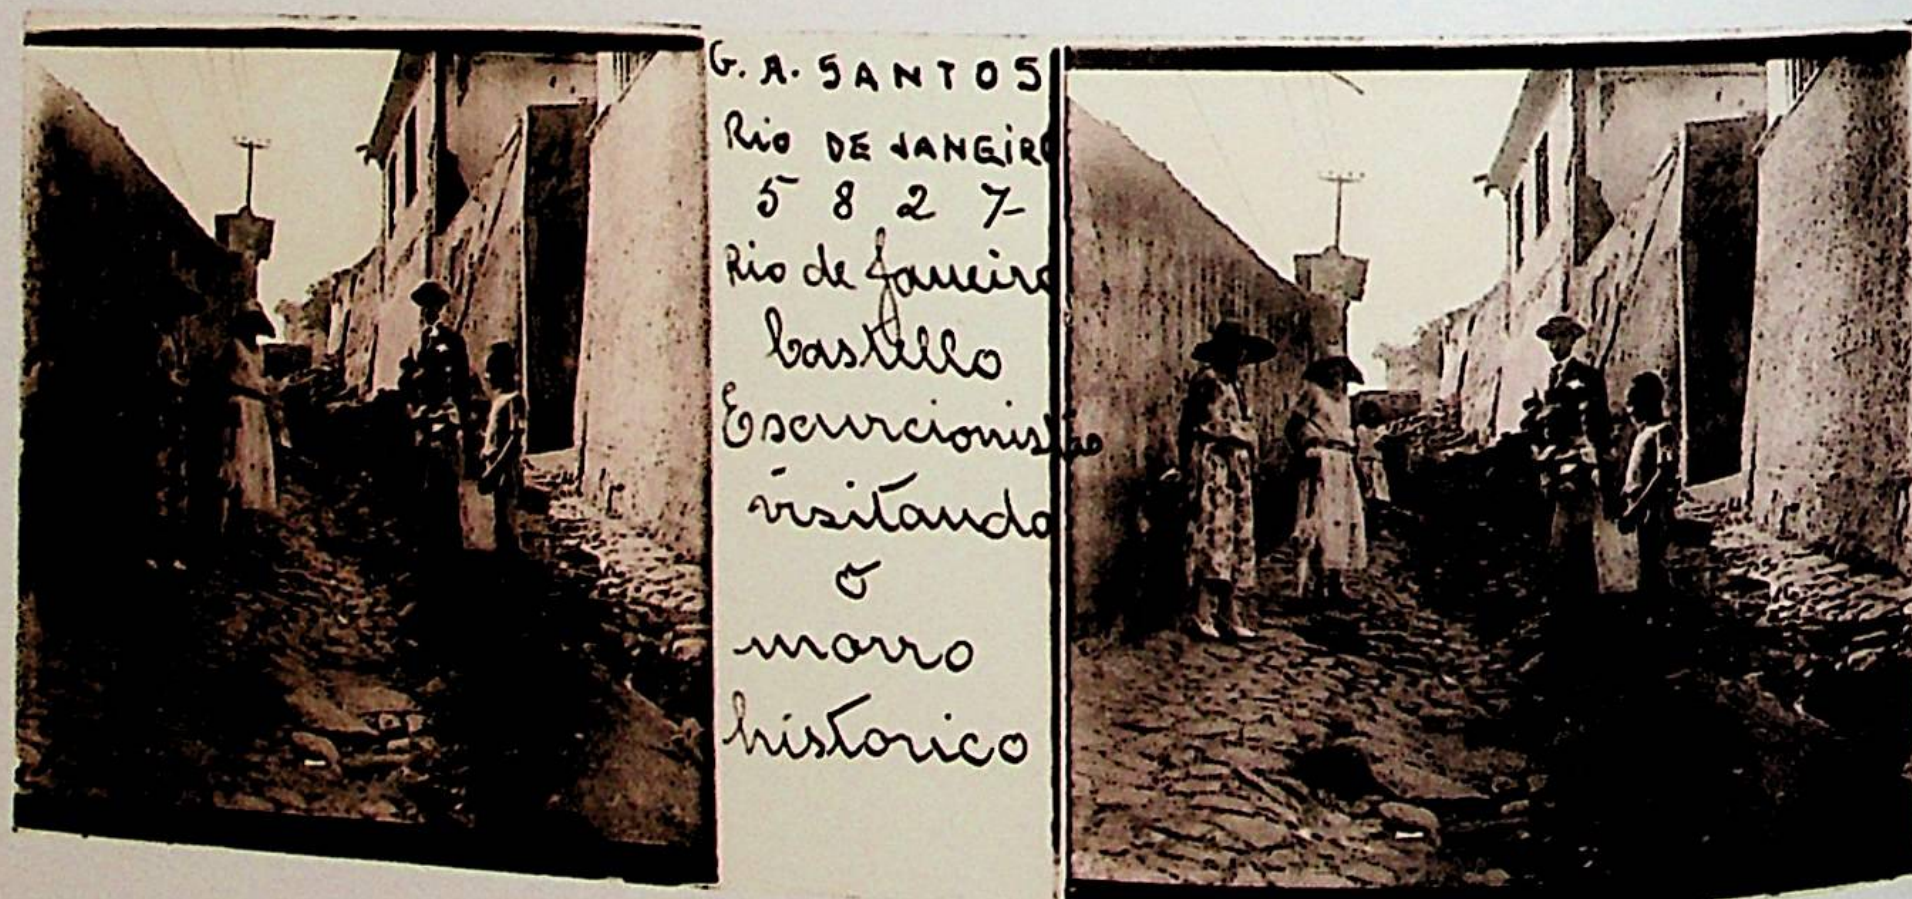 G. A. SANTOS
Rio DE JANEIRO
5 8 2 7
Rio de Janeiro
Castello
Escurcionistas
visitando
o
morro
historico